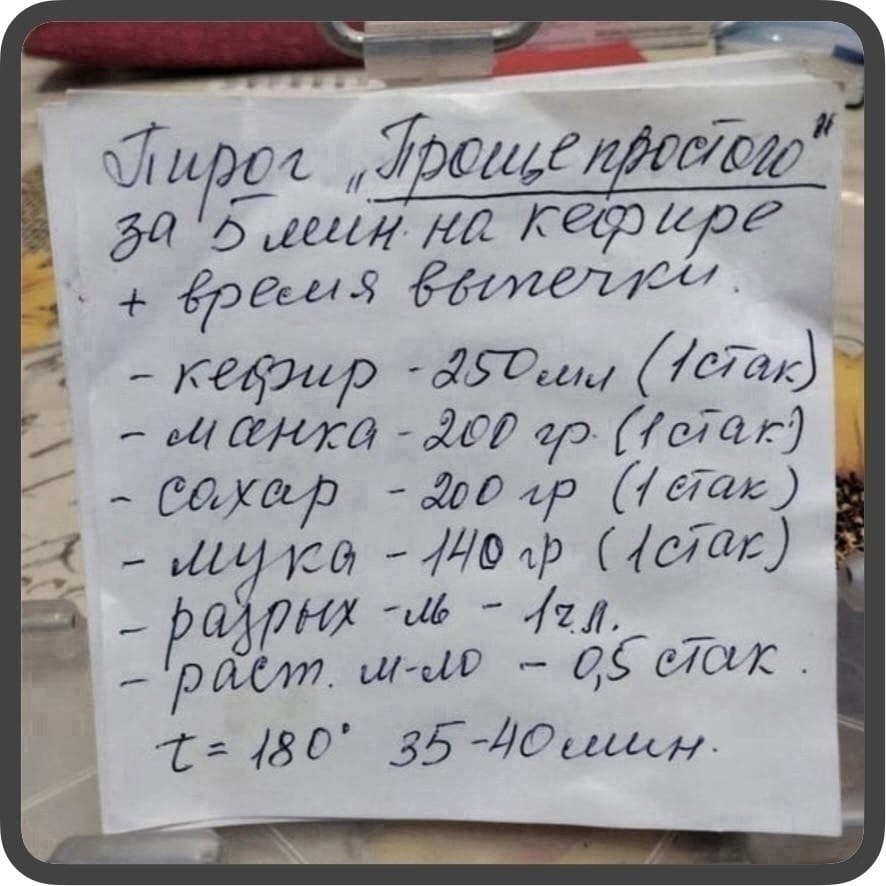 Пирог „Проще простого"
за 5 мин. на кефире
+ время выпечки.
- кефир - 250 мл (1 стак)
- манка - 200 гр. (1 стак.)
- сахар - 200 гр (1 стак)
- мука - 140 гр (1 стак)
- разрых-ль - 1 ч.л.
- раст. м-ло - 0,5 стак.
t = 180° 35-40 мин.